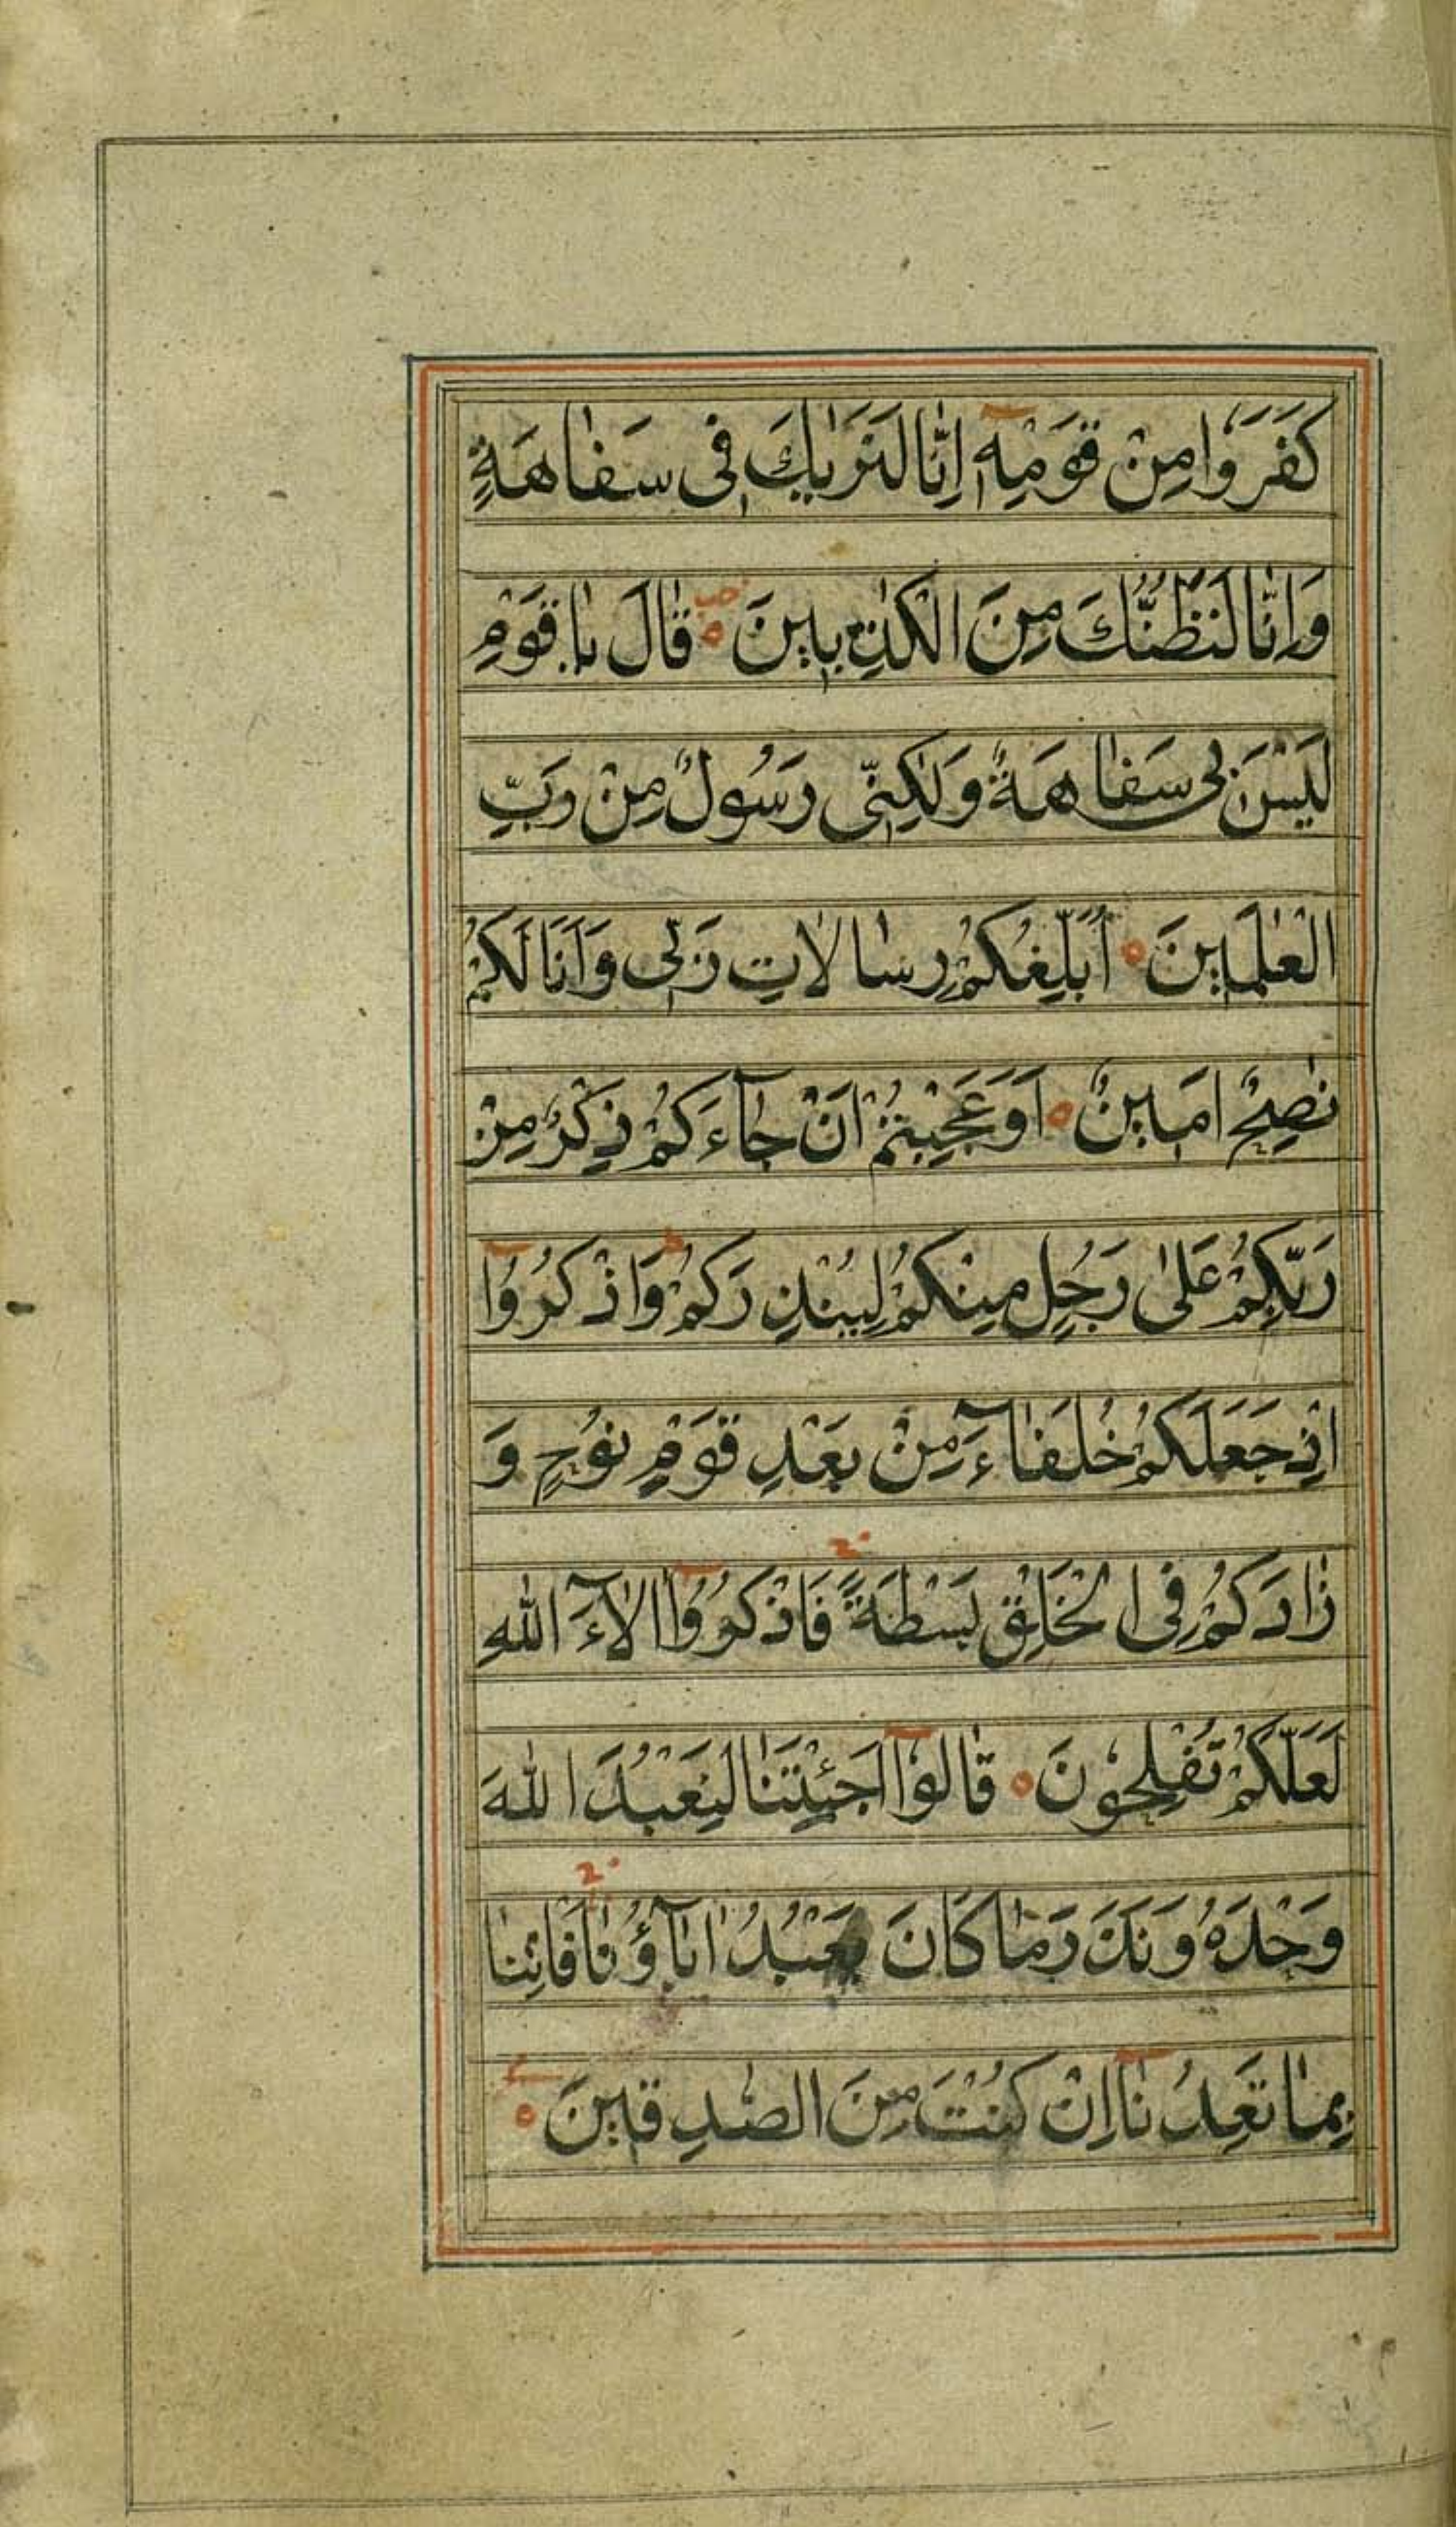 كَفَرُوا مِنْ قَوْمِهٓ اِنّٰا لَنَرٰيكَ فِى سَفٰاهَةٍ
وَاِنّٰا لَنَظُنُّكَ مِنَ الْكٰذِبٖينَ قٰالَ يٰا قَوْمِ
لَيْسَ بٖى سَفٰاهَةٌ وَلٰكِنّٖى رَسُولٌ مِنْ رَبِّ
الْعٰلَمٖينَ اُبَلِّغُكُمْ رِسٰالاٰتِ رَبّٖى وَاَنَا لَكُمْ
نٰصِحٌ اَمٖينٌ اَوَعَجِبْتُمْ اَنْ جٰآءَكُمْ ذِكْرٌ مِنْ
رَبِّكُمْ عَلىٰ رَجُلٍ مِنْكُمْ لِيُنْذِرَكُمْ وَاذْكُرُوٓا
اِذْ جَعَلَكُمْ خُلَفٰآءَ مِنْ بَعْدِ قَوْمِ نُوحٍ وَ
زٰادَكُمْ فِى الْخَلْقِ بَسْطَةً فَاذْكُرُوٓا اٰلآٰءَ اللّٰهِ
لَعَلَّكُمْ تُفْلِحُونَ قٰالُوٓا اَجِئْتَنٰا لِنَعْبُدَ اللّٰهَ
وَحْدَهُ وَنَذَرَ مٰا كَانَ يَعْبُدُ اٰبٰآؤُنٰا فَأْتِنٰا
بِمٰا تَعِدُنٰآ اِنْ كُنْتَ مِنَ الصّٰدِقٖينَ